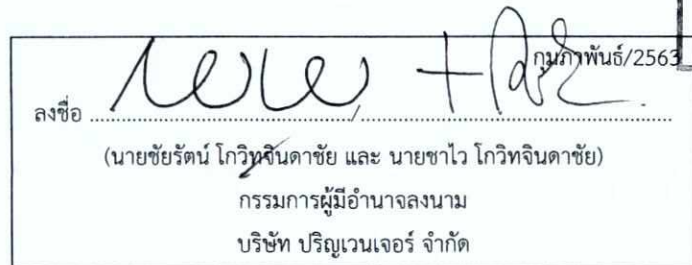 กุมภาพันธ์/2563
ลงชื่อ ......................................./...............................................
(นายชัยรัตน์ โกวิทจินดาชัย และ นายชาไว โกวิทจินดาชัย)
กรรมการผู้มีอำนาจลงนาม
บริษัท ปริญเวนเจอร์ จำกัด